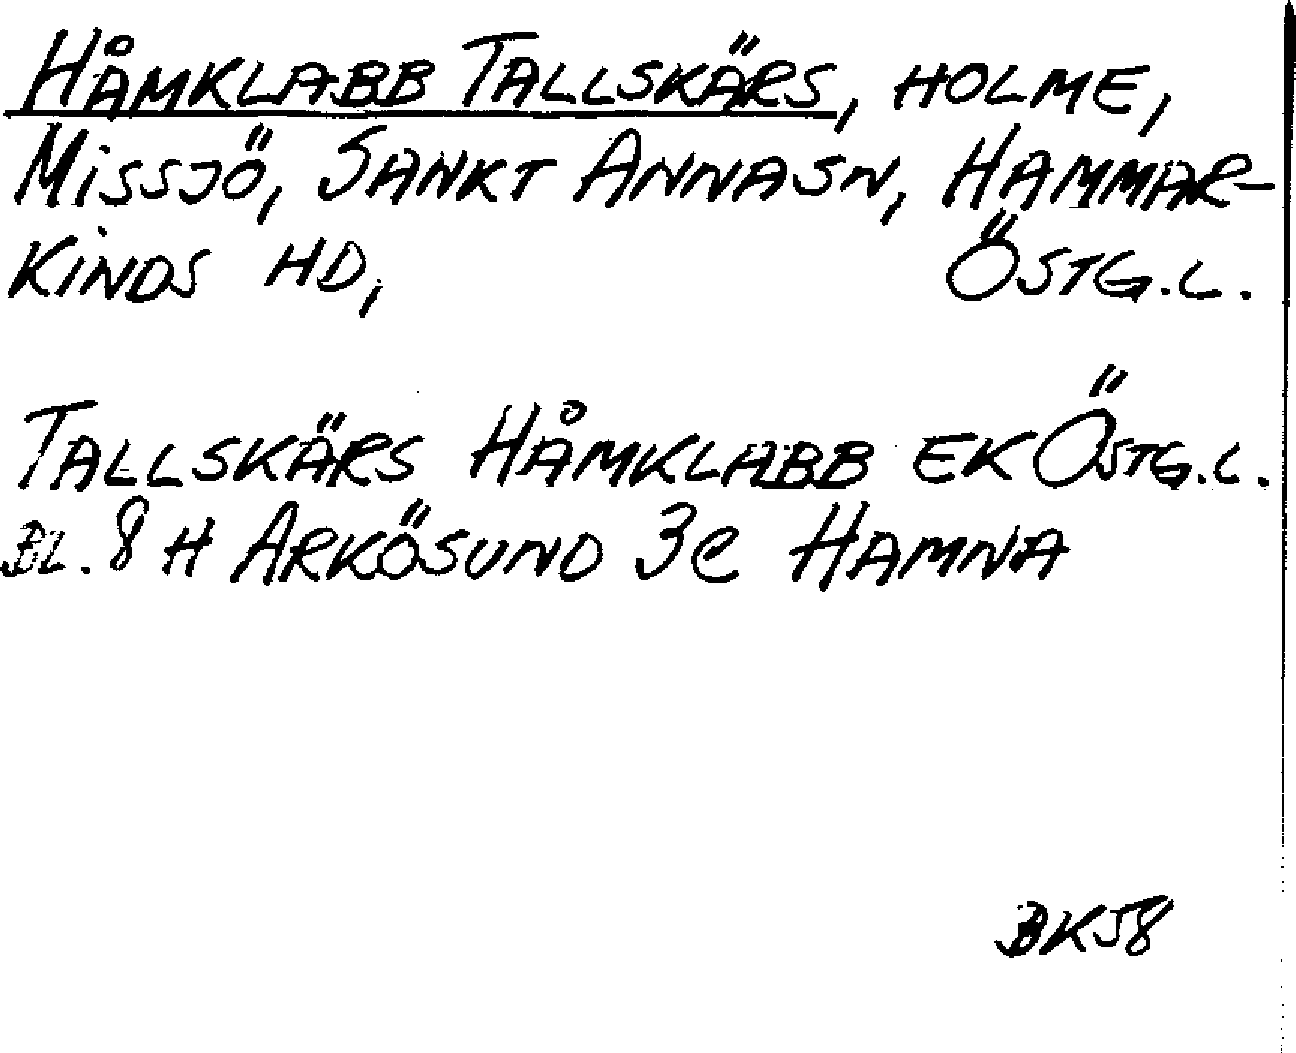 HÅMKLABB TALLSKÄRS, HOLME,
MISSJÖ, SANKT ANNA SN, HAMMAR-
KINDS HD, ÖSTG.L.
TALLSKÄRS HÅMKLABB EK ÖSTG.L.
BL. 8 H ARKÖSUND 3e HAMNA
BK58